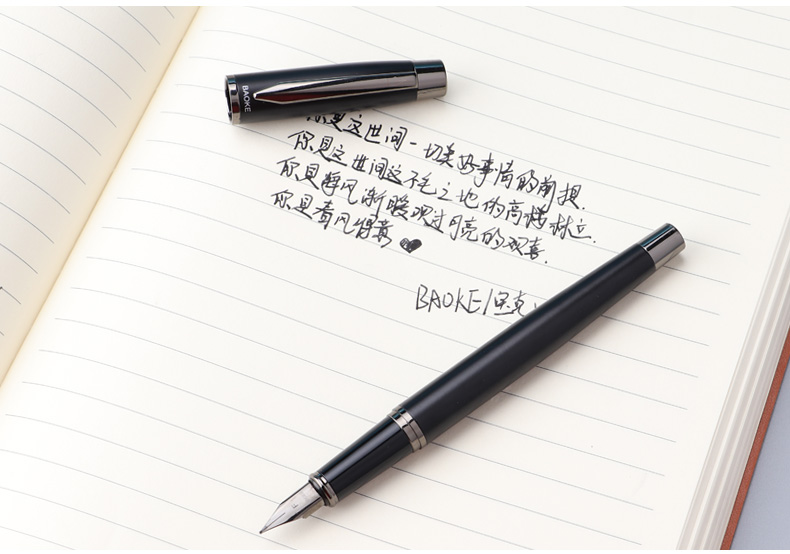 BAOKE
你是这世间一切美好事情的前提.
你是这世间这不毛之地的高楼林立.
你是静风渐暖观过月亮的双喜.
你是春风得意♥
BAOKE/宝克